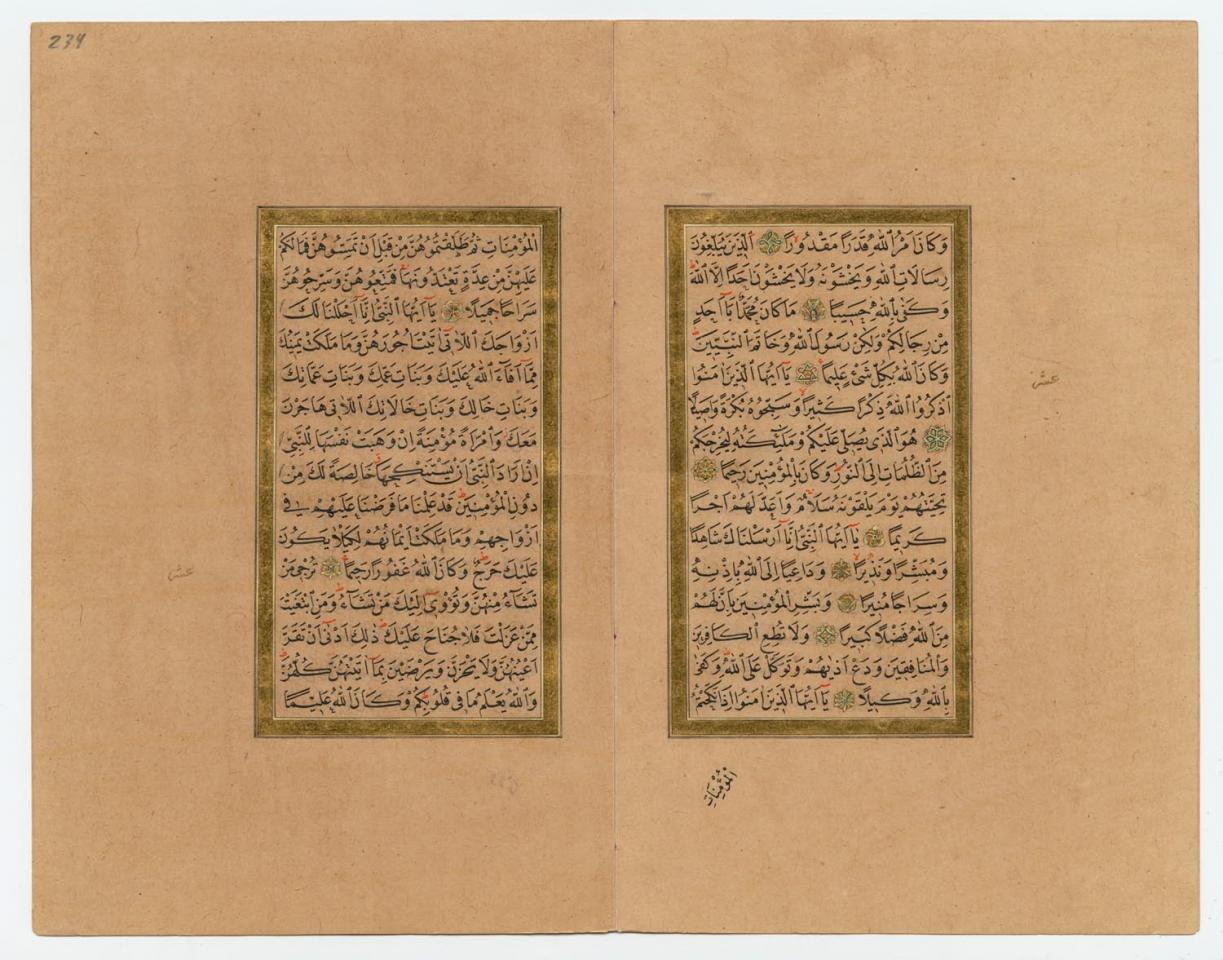 وَكَانَ اَمْرُ اللّٰهِ قَدَرًا مَقْدُورًا اَلَّذِينَ يُبَلِّغُونَ
رِسَالَاتِ اللّٰهِ وَيَخْشَوْنَهُ وَلَا يَخْشَوْنَ اَحَدًا اِلَّا اللّٰهَ
وَكَفٰى بِاللّٰهِ حَسِيبًا مَا كَانَ مُحَمَّدٌ اَبَٓا اَحَدٍ
مِنْ رِجَالِكُمْ وَلٰكِنْ رَسُولَ اللّٰهِ وَخَاتَمَ النَّبِيِّينَ
وَكَانَ اللّٰهُ بِكُلِّ شَيْءٍ عَلِيمًا يَٓا اَيُّهَا الَّذِينَ اٰمَنُوا
اذْكُرُوا اللّٰهَ ذِكْرًا كَثِيرًا وَسَبِّحُوهُ بُكْرَةً وَاَصِيلًا
هُوَ الَّذِي يُصَلِّي عَلَيْكُمْ وَمَلٰٓئِكَتُهُ لِيُخْرِجَكُمْ
مِنَ الظُّلُمَاتِ اِلَى النُّورِ وَكَانَ بِالْمُؤْمِنِينَ رَحِيمًا
تَحِيَّتُهُمْ يَوْمَ يَلْقَوْنَهُ سَلَامٌ وَاَعَدَّ لَهُمْ اَجْرًا
كَرِيمًا يَٓا اَيُّهَا النَّبِيُّ اِنَّٓا اَرْسَلْنَاكَ شَاهِدًا
وَمُبَشِّرًا وَنَذِيرًا وَدَاعِيًا اِلَى اللّٰهِ بِاِذْنِهِ
وَسِرَاجًا مُنِيرًا وَبَشِّرِ الْمُؤْمِنِينَ بِاَنَّ لَهُمْ
مِنَ اللّٰهِ فَضْلًا كَبِيرًا وَلَا تُطِعِ الْكَافِرِينَ
وَالْمُنَافِقِينَ وَدَعْ اَذٰيهُمْ وَتَوَكَّلْ عَلَى اللّٰهِ وَكَفٰى
بِاللّٰهِ وَكِيلًا يَٓا اَيُّهَا الَّذِينَ اٰمَنُوا اِذَا نَكَحْتُمُ
الْمُؤْمِنَاتِ
عشر
234
الْمُؤْمِنَاتِ ثُمَّ طَلَّقْتُمُوهُنَّ مِنْ قَبْلِ اَنْ تَمَسُّوهُنَّ فَمَا لَكُمْ
عَلَيْهِنَّ مِنْ عِدَّةٍ تَعْتَدُّونَهَا فَمَتِّعُوهُنَّ وَسَرِّحُوهُنَّ
سَرَاحًا جَمِيلًا يَٓا اَيُّهَا النَّبِيُّ اِنَّٓا اَحْلَلْنَا لَكَ
اَزْوَاجَكَ اللَّاتِٓي اٰتَيْتَ اُجُورَهُنَّ وَمَا مَلَكَتْ يَمِينُكَ
مِمَّٓا اَفَٓاءَ اللّٰهُ عَلَيْكَ وَبَنَاتِ عَمِّكَ وَبَنَاتِ عَمَّاتِكَ
وَبَنَاتِ خَالِكَ وَبَنَاتِ خَالَاتِكَ اللَّاتِي هَاجَرْنَ
مَعَكَ وَامْرَاَةً مُؤْمِنَةً اِنْ وَهَبَتْ نَفْسَهَا لِلنَّبِيِّ
اِنْ اَرَادَ النَّبِيُّ اَنْ يَسْتَنْكِحَهَا خَالِصَةً لَكَ مِنْ
دُونِ الْمُؤْمِنِينَ قَدْ عَلِمْنَا مَا فَرَضْنَا عَلَيْهِمْ فِي
اَزْوَاجِهِمْ وَمَا مَلَكَتْ اَيْمَانُهُمْ لِكَيْلَا يَكُونَ
عَلَيْكَ حَرَجٌ وَكَانَ اللّٰهُ غَفُورًا رَحِيمًا تُرْجِي مَنْ
تَشَٓاءُ مِنْهُنَّ وَتُؤْوِٓي اِلَيْكَ مَنْ تَشَٓاءُ وَمَنِ ابْتَغَيْتَ
مِمَّنْ عَزَلْتَ فَلَا جُنَاحَ عَلَيْكَ ذٰلِكَ اَدْنٰٓى اَنْ تَقَرَّ
اَعْيُنُهُنَّ وَلَا يَحْزَنَّ وَيَرْضَيْنَ بِمَٓا اٰتَيْتَهُنَّ كُلُّهُنَّ
وَاللّٰهُ يَعْلَمُ مَا فِي قُلُوبِكُمْ وَكَانَ اللّٰهُ عَلِيمًا
عشر